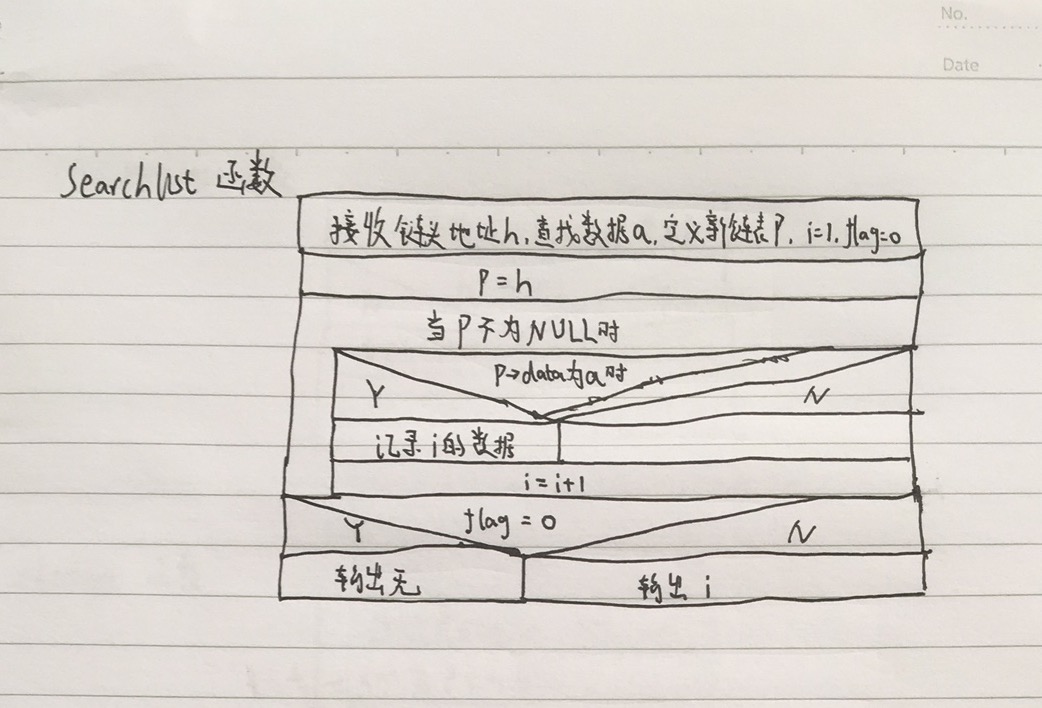 No.
Date
Searchlist 函数
接收链表地址h,查找数据a,定义新链表P, i=1, flag=0
P=h
当P不为NULL时
P→data为a时
Y N
记录i的数据
i=i+1
flag=0
Y N
输出无 输出i